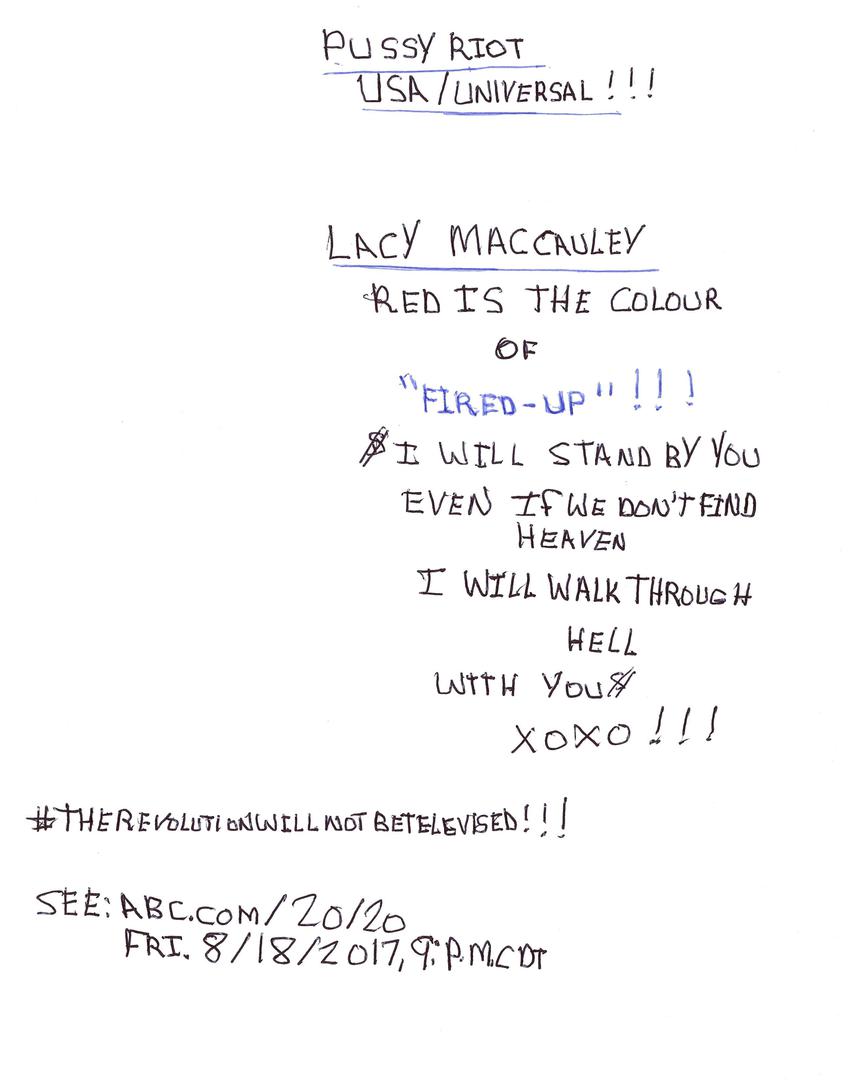 PUSSY RIOT
USA/UNIVERSAL!!!
LACY MACCAULEY
RED IS THE COLOUR
OF
"FIRED-UP"!!!
I WILL STAND BY YOU
EVEN IF WE DON'T FIND
HEAVEN
I WILL WALK THROUGH
HELL
WITH YOU
XOXO!!!
#THEREVOLUTIONWILLNOTBETELEVISED!!!
SEE: ABC.COM/20/20
FRI. 8/18/2017, 9:P.M.CDT